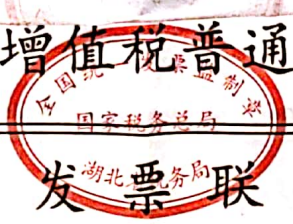 增值税普通
全国统一发票监制章
国家税务总局
湖北省税务局
发票联